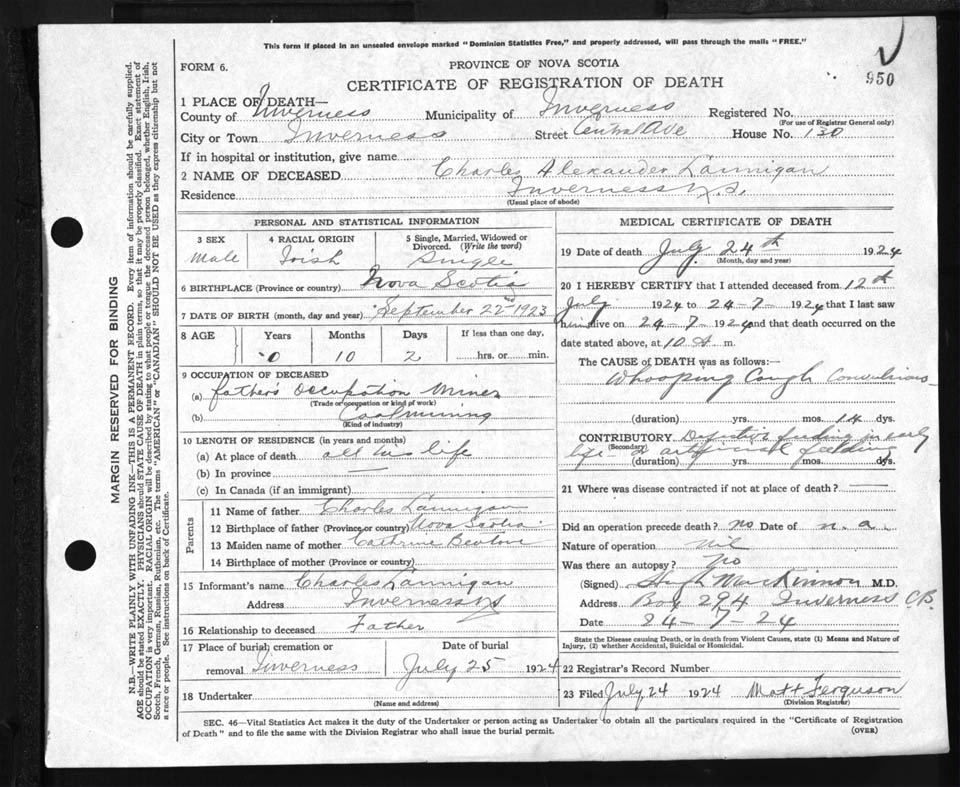 This form if placed in an unsealed envelope marked "Dominion Statistics Free," and properly addressed, will pass through the mails "FREE."
FORM 6.
PROVINCE OF NOVA SCOTIA
950
CERTIFICATE OF REGISTRATION OF DEATH
1 PLACE OF DEATH—
County of Inverness Municipality of Inverness Registered No.
(For use of Registrar General only)
City or Town Inverness Street Central Ave House No. 130
If in hospital or institution, give name
2 NAME OF DECEASED Charles Alexander Lannigan
Residence Inverness N.S.
(Usual place of abode)
PERSONAL AND STATISTICAL INFORMATION
3 SEX 4 RACIAL ORIGIN 5 Single, Married, Widowed or Divorced. (Write the word)
Male Irish Single
6 BIRTHPLACE (Province or country) Nova Scotia
7 DATE OF BIRTH (month, day and year) September 22nd 1923
8 AGE Years Months Days If less than one day,
0 10 2 hrs. or min.
9 OCCUPATION OF DECEASED
(a) father's Occupation Miner
(Trade or occupation or kind of work)
(b) Coalmining
(Kind of industry)
10 LENGTH OF RESIDENCE (in years and months)
(a) At place of death all his life
(b) In province —
(c) In Canada (if an immigrant)
Parents
11 Name of father Charles Lannigan
12 Birthplace of father (Province or country) Nova Scotia
13 Maiden name of mother Cathrine
14 Birthplace of mother (Province or country)
15 Informant's name Charles Lannigan
Address Inverness NS
16 Relationship to deceased Father
17 Place of burial, cremation or removal Inverness
Date of burial July 25 1924
18 Undertaker
(Name and address)
MEDICAL CERTIFICATE OF DEATH
19 Date of death July 24th 1924
(Month, day and year)
20 I HEREBY CERTIFY that I attended deceased from 12th
July 1924 to 24-7-1924 that I last saw
him alive on 24-7-1924 and that death occurred on the
date stated above, at 10 A m.
The CAUSE OF DEATH was as follows:—
Whooping Cough Convulsions
(duration) yrs. mos. 14 dys.
CONTRIBUTORY Defective feeding in early
(Secondary)
life - artificial feeding
(duration) yrs. mos. dys.
21 Where was disease contracted if not at place of death? —
Did an operation precede death? no Date of n.a.
Nature of operation nil
Was there an autopsy? no
(Signed) Hugh MacKinnon M.D.
Address Box 294 Inverness C.B.
Date 24-7-24
State the Disease causing Death, or in death from Violent Causes, state (1) Means and Nature of
Injury, (2) whether Accidental, Suicidal or Homicidal.
22 Registrar's Record Number
23 Filed July 24 1924 Matt Ferguson
(Division Registrar)
SEC. 46—Vital Statistics Act makes it the duty of the Undertaker or person acting as Undertaker to obtain all the particulars required in the "Certificate of Registration
of Death" and to file the same with the Division Registrar who shall issue the burial permit.
(OVER)
MARGIN RESERVED FOR BINDING
N.B.—WRITE PLAINLY, WITH UNFADING INK—THIS IS A PERMANENT RECORD. Every item of information should be carefully supplied.
AGE should be stated EXACTLY. PHYSICIANS should STATE CAUSE OF DEATH in plain terms, so that it may be properly classified. Exact statement of
OCCUPATION is very important. RACIAL ORIGIN will be described by stating to what people or tongue the deceased person belonged, whether English, Irish,
Scotch, French, German, Russian, Ruthenian, etc. The terms "AMERICAN" or "CANADIAN" SHOULD NOT BE USED as they express citizenship but not
a race or people. See instructions on back of Certificate.